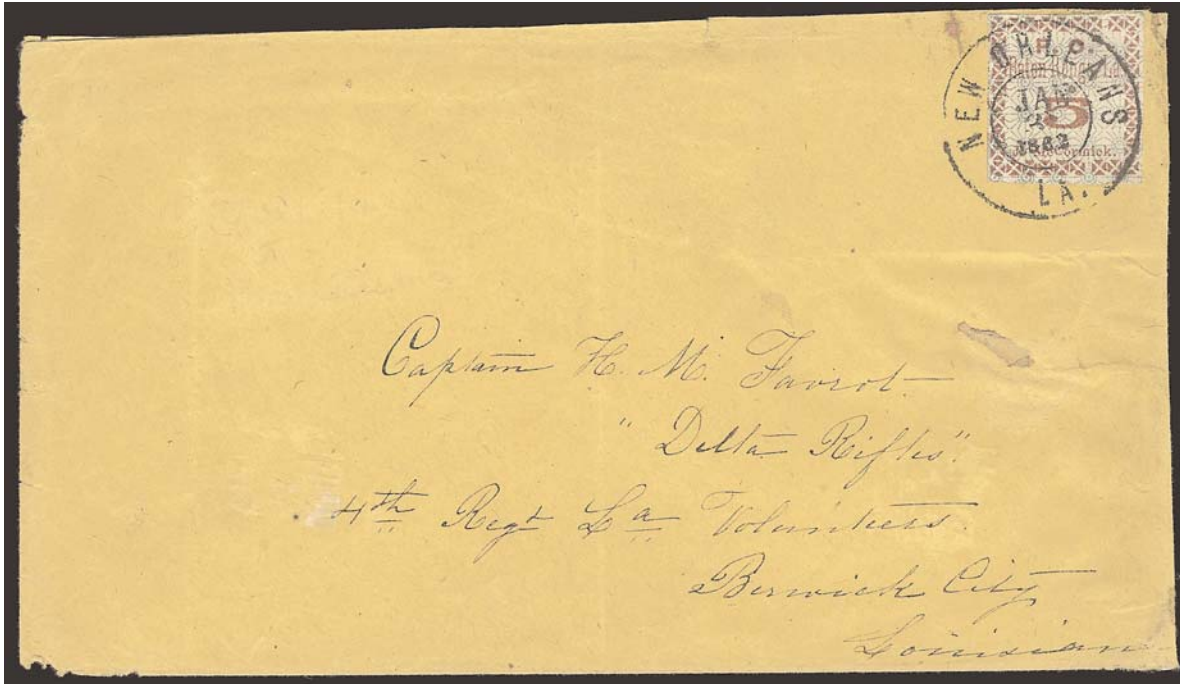 NEW ORLEANS
LA.
JAN
2
1862
P. O.
Baton Rouge, La.
5
McCormick.
Captain H. M. Favrot
"Delta Rifles"
4th Regt La Volunteers
Berwick City
Louisian